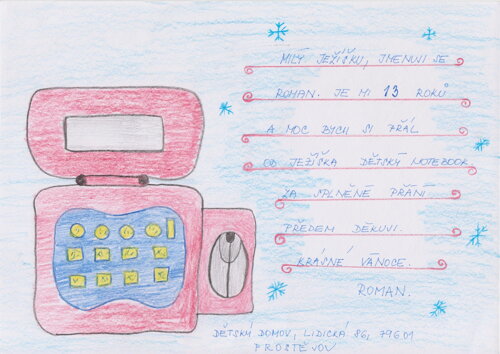 MILÝ JEŽÍŠKU, JMENUJI SE
ROMAN. JE MI 13 ROKŮ
A MOC BYCH SI PŘÁL
OD JEŽÍŠKA DĚTSKÝ NOTEBOOK
ZA SPLNĚNÉ PŘÁNÍ
PŘEDEM DĚKUJI.
KRÁSNÉ VÁNOCE.
ROMAN.
DĚTSKÝ DOMOV, LIDICKÁ 86, 79601
PROSTĚJOV